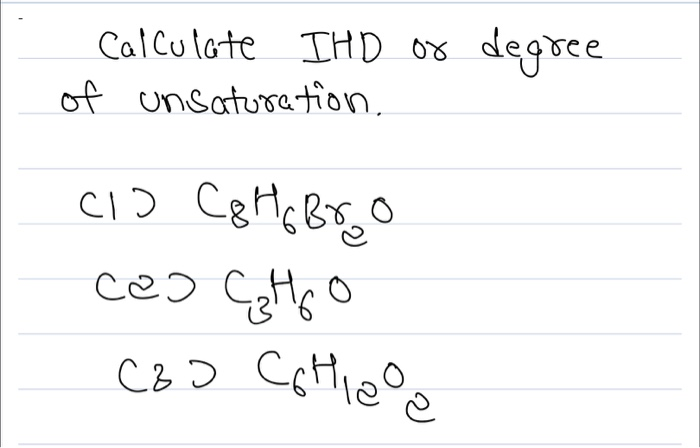 Calculate IHD or degree
of unsaturation.
(1) C₈H₆Br₂O
(2) C₃H₆O
(3) C₆H₁₂O₂